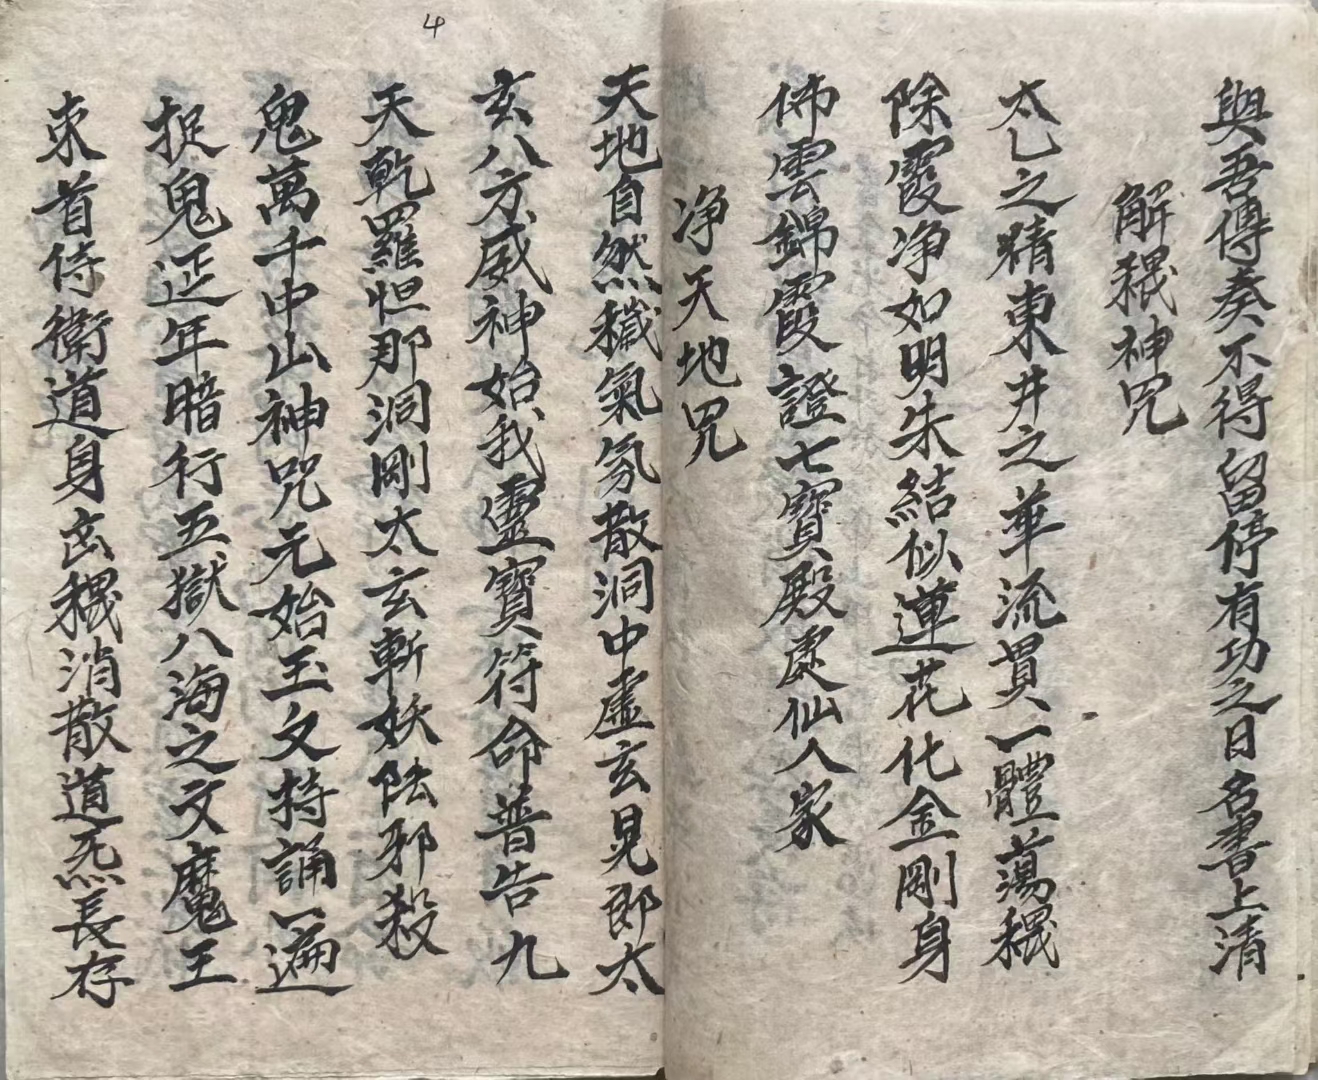 與吾傳奏不得留停有功之日名書上清
解穢神咒
太乙之精東井之華流貫一體蕩穢
除霞净如明朱結似蓮花化金剛身
佈雲錦霞證七寶殿處仙人家
净天地咒
天地自然穢氣氛散洞中虛玄晃郎太
玄八方威神始我靈寶符命普告九
天乾羅怛那洞剛太玄斬妖陸邪殺
鬼萬千中山神咒元始玉文持誦一遍
捉鬼延年暗行五獄八海之文魔王
束首侍衛道身凶穢消散道炁長存
4